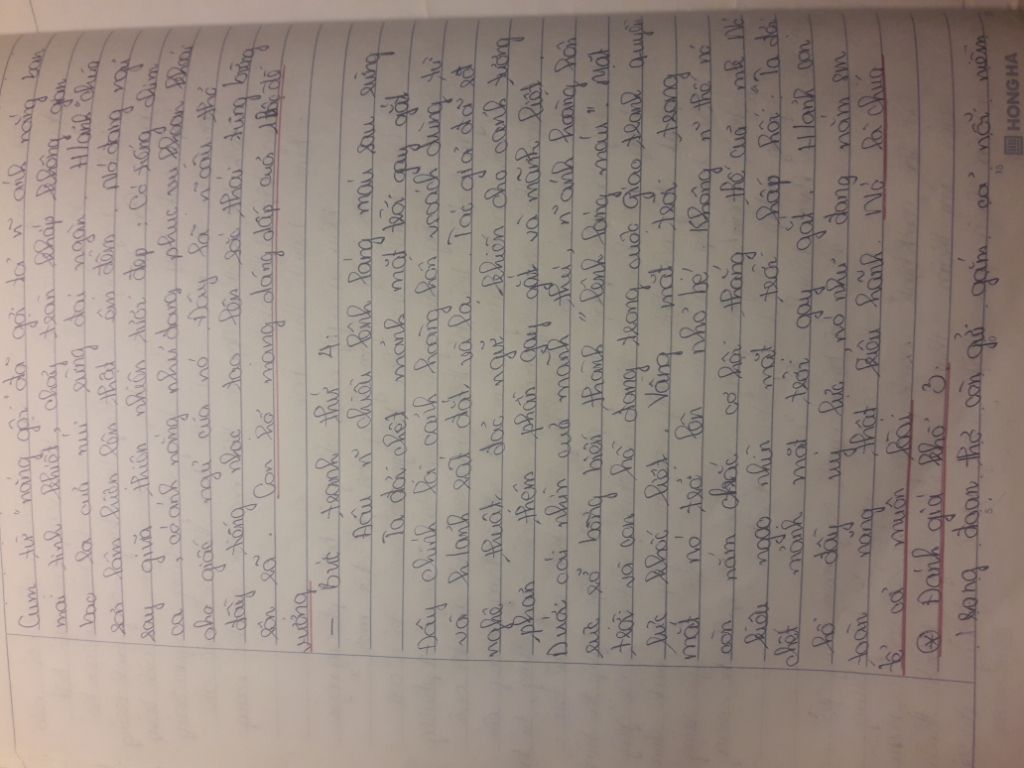 Cụm từ "nắng gội" đã gợi tả n ánh nắng ban
mai tinh khiết, chảy tràn khắp không gian
bao la của núi rừng đại ngàn. Hình ảnh chúa
sơn lâm hiện lên thật ấn tượng. Nó đang ngủ
say giữa thiên nhiên tươi đẹp: Có tiếng chim
ca, có ánh nắng như đang phục vụ khoan khoái
cho giấc ngủ của nó. Đây là n câu thơ
đầy tiếng nhạc tạo lên sắc thái tưng bừng
rộn rã. Con hổ mang dáng dấp của 1 bậc đế
vương
– Bức tranh thứ 4:
Đâu n chiều lênh láng máu sau rừng
Ta đợi chết mảnh mặt trời gay gắt
Đây chính là cảnh hoàng hôn vo cách dùng từ
nghệ thuật độc
phần thêm phần gay gắt và mãnh liệt.
Dưới cái nhìn của mãnh thú, n ánh hoàng hôn
rực rỡ bỗng biến thành "lênh láng máu". Mặt
trời và con hổ đang trong cuộc giao tranh quyền
lực khốc liệt. Vầng mặt trời trong
mắt nó trở lên nhỏ bé. Không n thế nó
còn nắm chắc cơ hội thắng thế của mk. Nó
kiêu ngạo nhìn mặt trời hấp hối. "Ta đợi
chết mảnh mặt trời gay gắt". Hình ảnh con
hổ đầy uy lực, nó như đang nằm in
toàn năng thật kiêu hãnh. Nó là chúa
tể cả muôn loài
⊛ Đánh giá khổ 3:
Trong đoạn thơ còn gửi gắm cả nỗi niềm
HONG HA